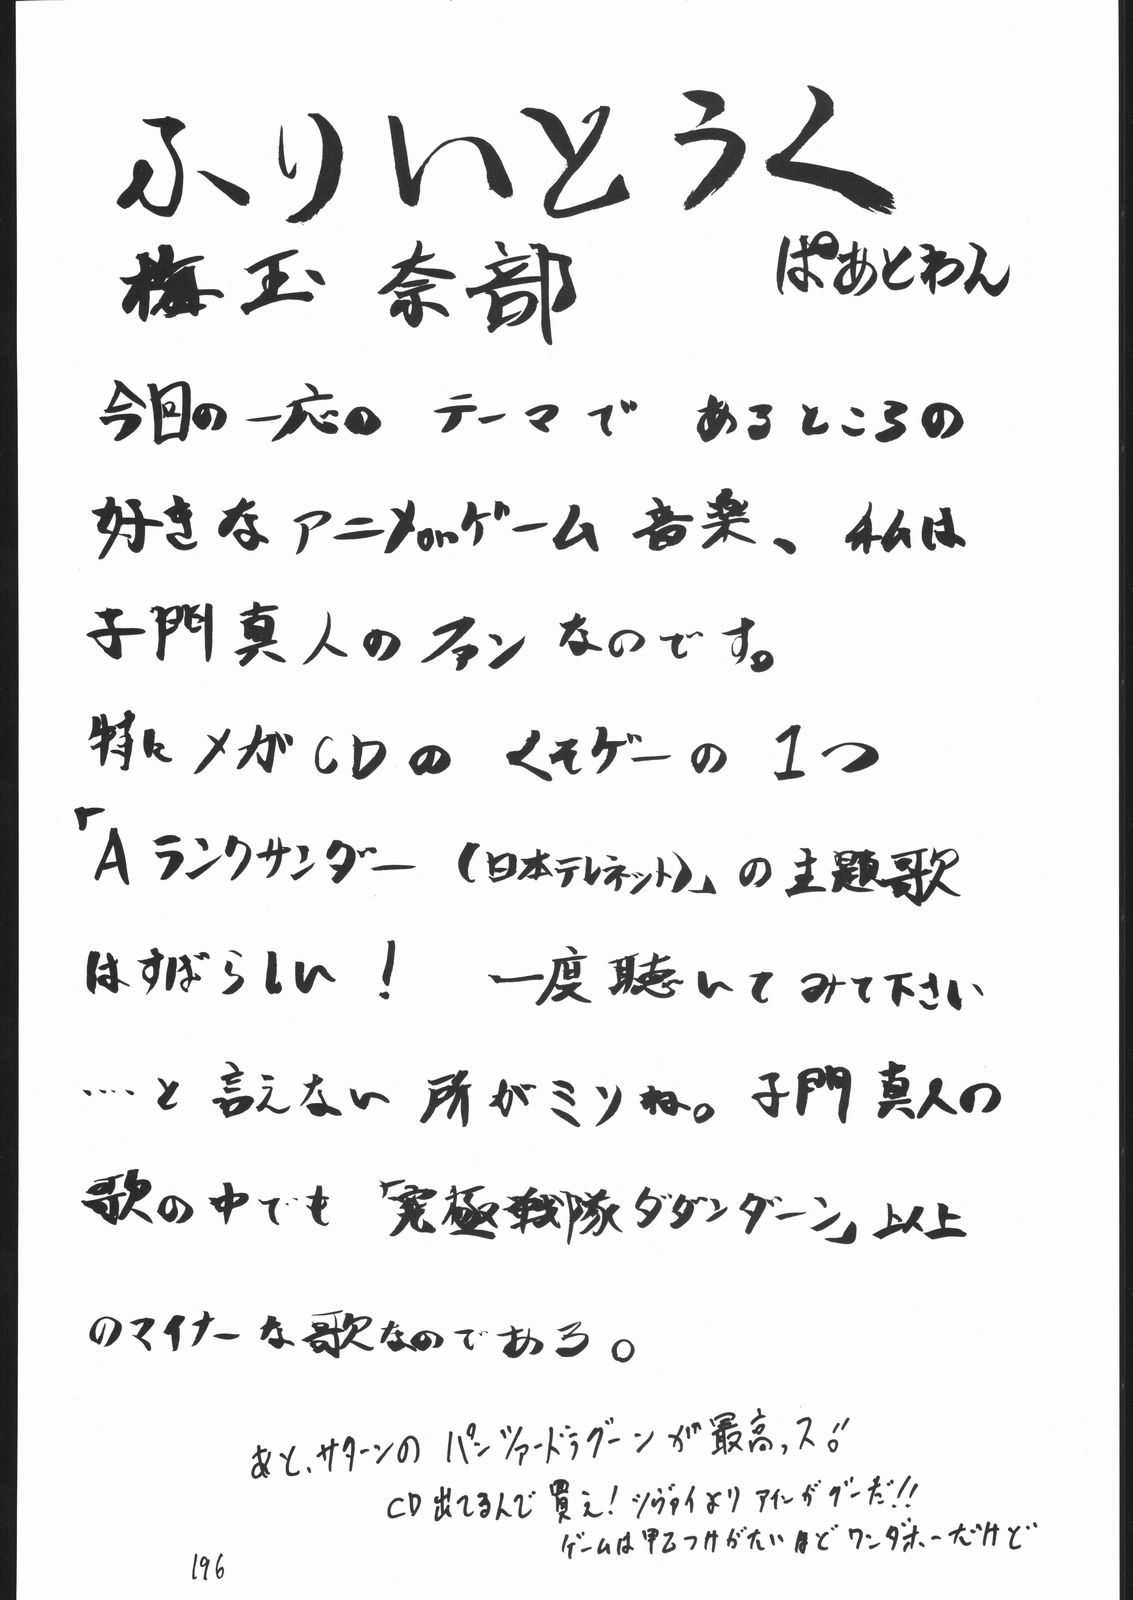 ふりいとうく
ぱあとわん
梅玉 奈部
今回の一応の テーマで あるところの
好きな アニメonゲーム 音楽、私は
子門真人の ファンなのです。
特に メガCDの くそゲーの 1つ
「Aランクサンダー (日本テレネット)」の主題歌
はすばらしい! 一度聴いてみて下さい
‥‥と 言えない 所がミソね。子門真人の
歌の中でも 「究極戦隊ダダンダーン」以上
のマイナーな歌なのである。
あと、サターンの パンツァードラグーンが最高っス!!
CD出てるんで買え!シヴァイよりアインがグーだ!!
ゲームは甲乙つけがたいほどワンダホーだけど
196